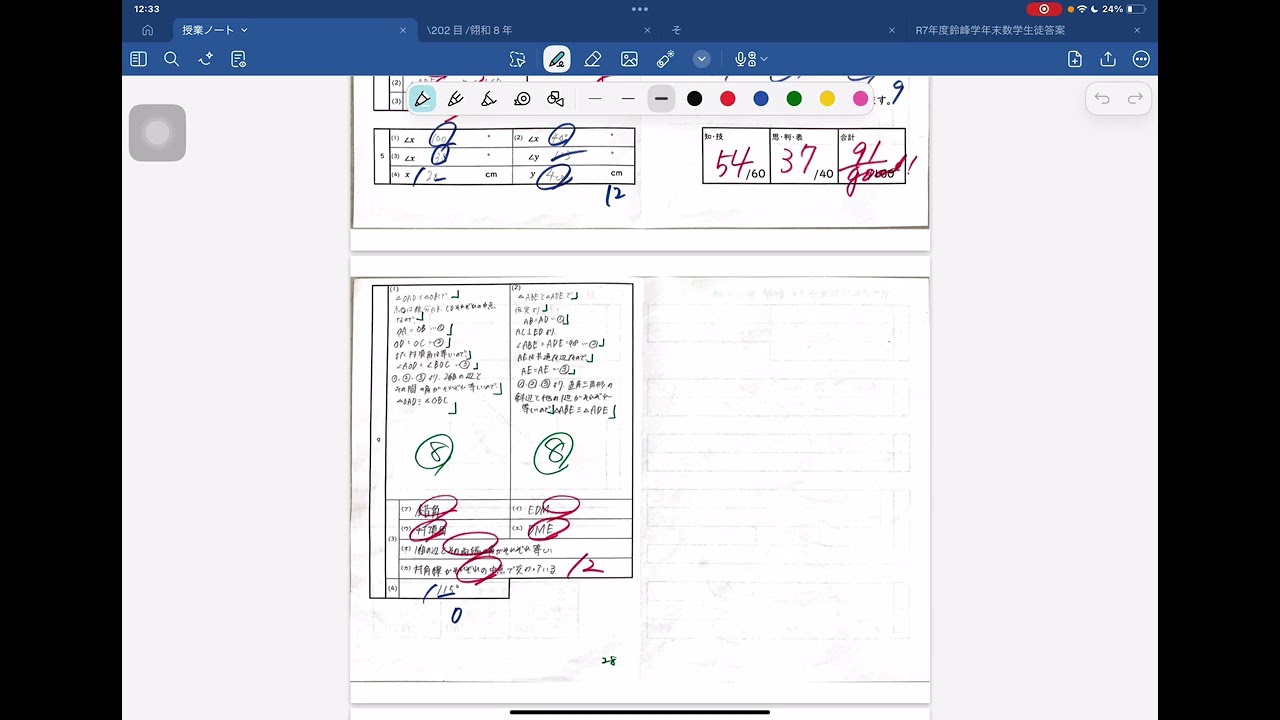 12:33
24%
授業ノート
\202 目 /翎和 8 年
そ
R7年度鈴峰学年末数学生徒答案
(2)
(3)
す。9
5
(1) ∠x
°
(2) ∠x
°
(3) ∠x
°
∠y
°
(4) x
cm
y
cm
12
知・技
思・判・表
合計
54 /60
37 /40
91
good!
(1)
△OADと△OBCで
OA = OB …①
OD = OC …②
また対頂角は等しいので
∠AOD = ∠BOC …③
①,②,③より、2組の辺と
その間の角がそれぞれ等しいので
△OAD≡△OBC
8
(2)
△ABEと△ADEで
仮定より
AB=AD …①
AC⊥EDより
AEは共通な辺なので
AE=AE …③
①,②,③より 直角三角形の
斜辺と他の1辺がそれぞれ
等しいので△ABE≡△ADE
8
(3)
(ア) 錯角
(イ) EDM
(ウ) 対頂角
(エ) DME
(オ) 1組の辺とその両端の角がそれぞれ等しい
(カ) 対角線がそれぞれの中点で交わっている
12
(4)
115°
0
28